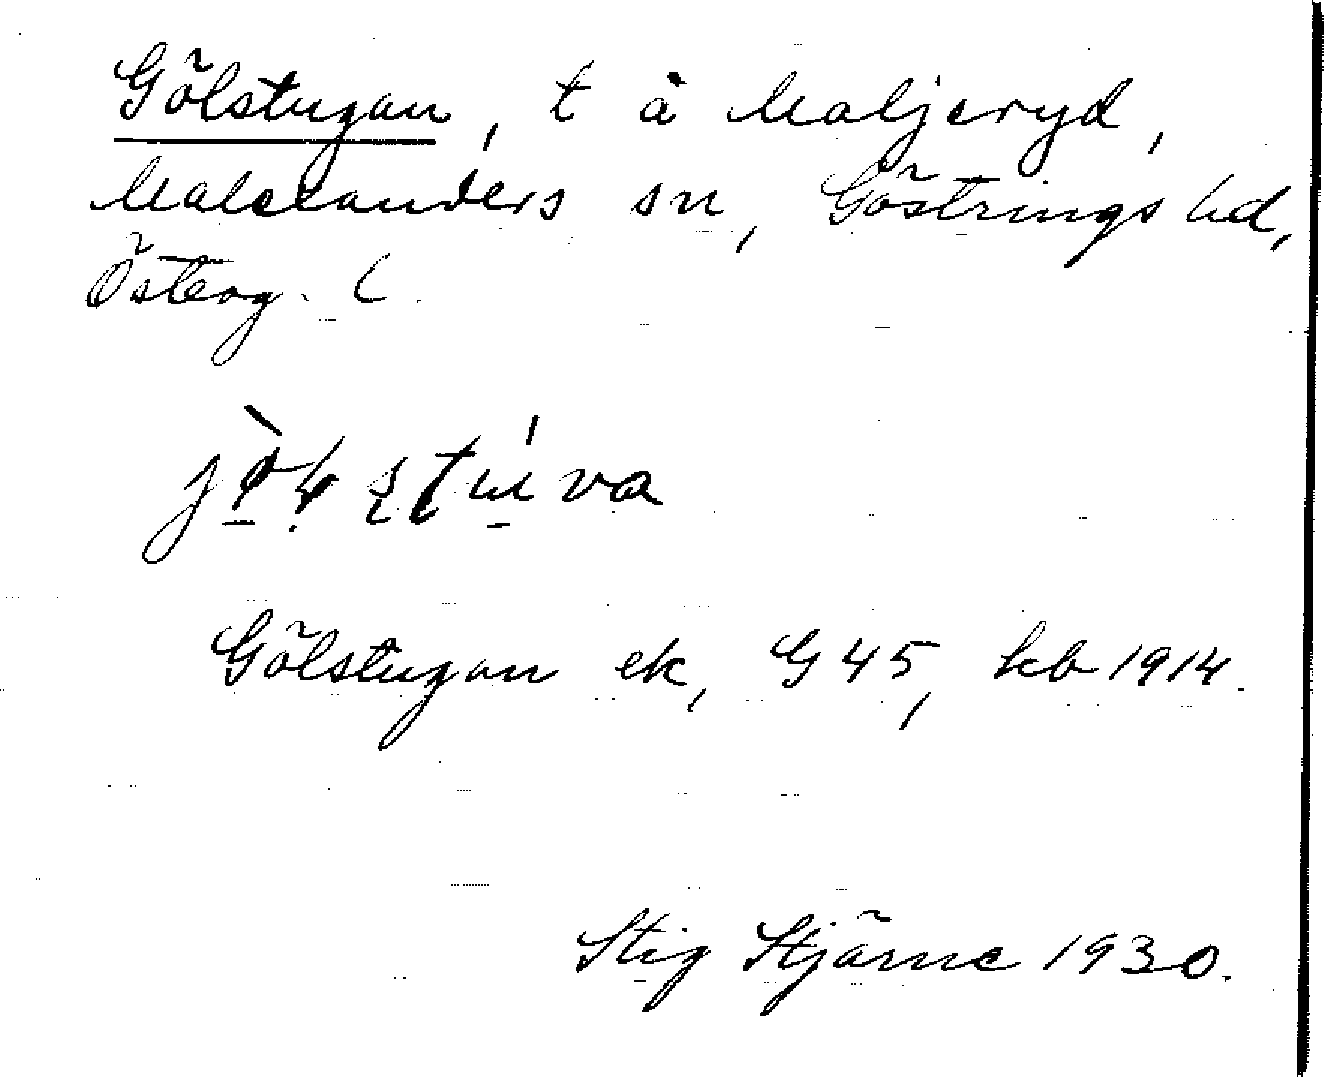 Gölstugan, t å Maljeryd,
Malexanders sn, Göstrings hd,
Österg. l.
Gölstugan ek, G 45, kb 1914.
Stig Stjärne 1930.